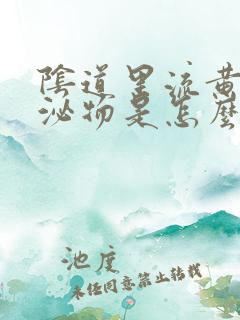 陰道里流黃
泌物是怎麼
池度
未经同意禁止转载